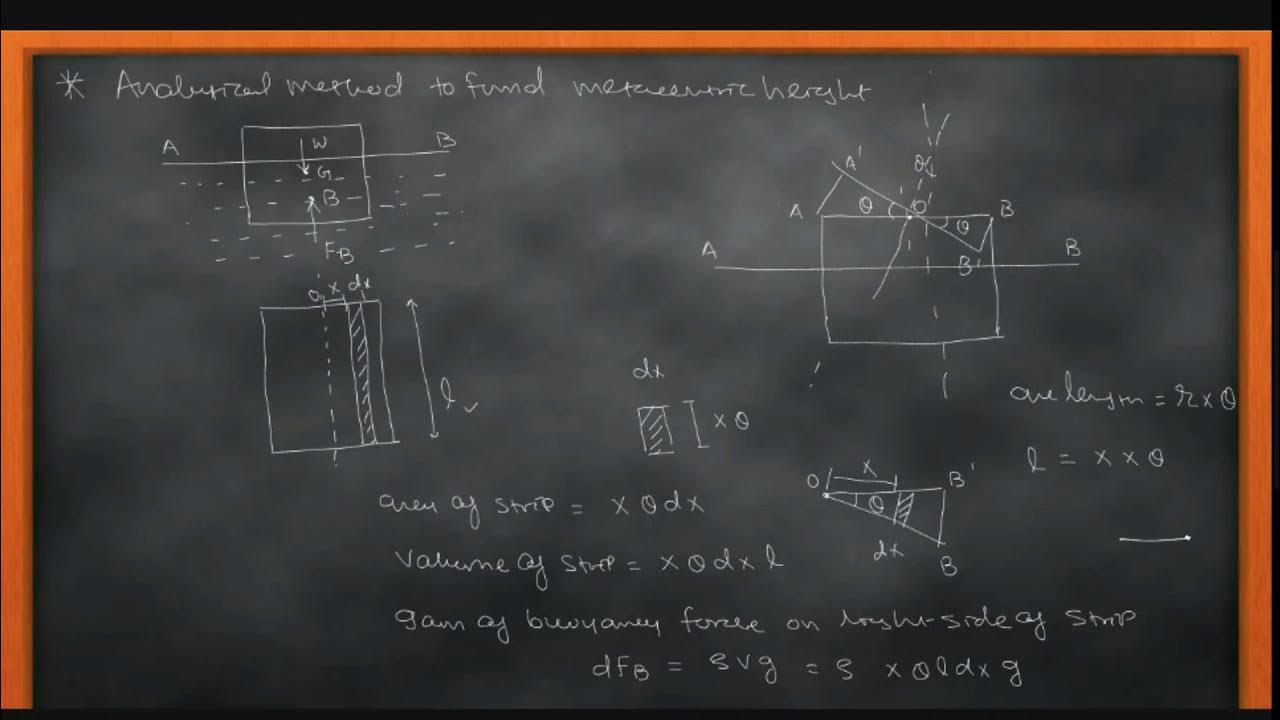 * Analytical method to find metacentric height
A W B
G
B
FB
O x dx
l
A' θ
A θ O θ B
A B' B
dx
xθ
arc length = r x θ
l = x x θ
O x B'
θ
dx B
area of strip = x θ dx
Volume of strip = x θ dx l
gain of buoyancy force on right side of strip
dFB = ρvg = ρ xθldx g